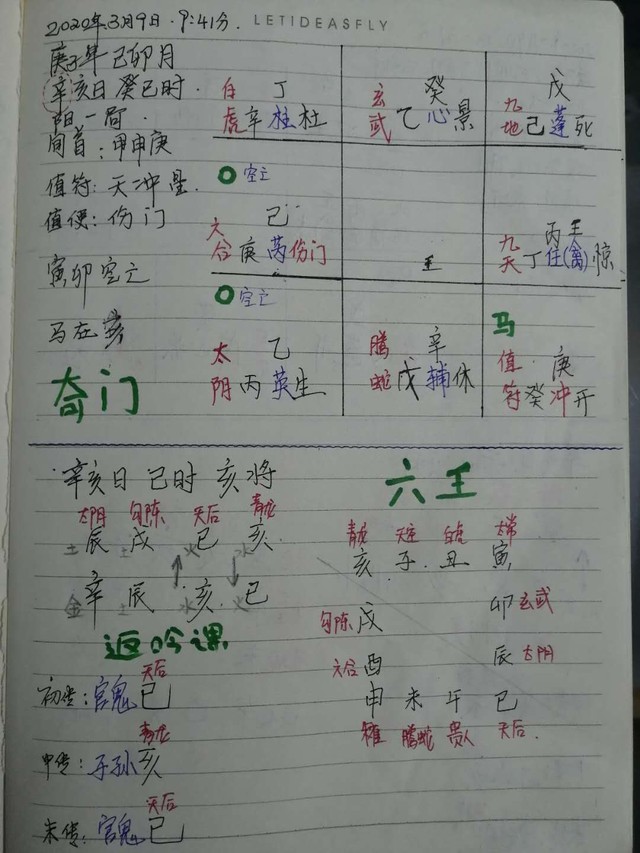 2020年3月9日·9:41分. LETIDEASFLY
庚子年 己卯月
辛亥日 癸巳时.
阳一局.
旬首:甲申庚
值符:天冲星.
值使:伤门
寅卯空亡
马在亥
奇门
白 丁
虎 辛 柱 杜
玄 癸
武 乙 心 景
九 戊
地 己 蓬 死
空亡
六 己
合 庚 芮 伤门
壬
九 丙 壬
天 丁 任(禽) 惊
空亡
太 乙
阴 丙 英 生
腾 辛
蛇 戊 辅 休
马
值 庚
符 癸 冲 开
辛亥日 巳时 亥将
太阴 勾陈 天后 青龙
土 辰 土 戌 火 巳 水 亥
金 辛 土 辰 水 亥 火 巳
返吟课
初传:官鬼 巳 天后
中传:子孙 亥 青龙
末传:官鬼 巳 天后
六壬
青龙 天空 白虎 太常
亥 子 丑 寅
勾陈 戌 卯 玄武
六合 酉 辰 太阴
申 未 午 巳
腾蛇 贵人 天后.